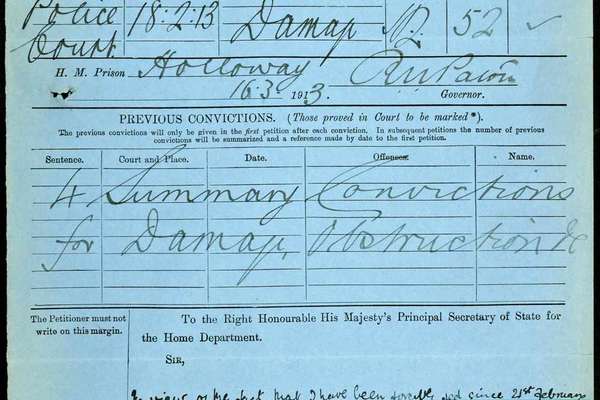 Police 18.2.13 Damage 52
Court
H. M. Prison Holloway
16.3. 1913. Governor.
PREVIOUS CONVICTIONS. (Those proved in Court to be marked*).
The previous convictions will only be given in the first petition after each conviction. In subsequent petitions the number of previous
convictions will be summarized and a reference made by date to the first petition.
Sentence. Court and Place. Date. Offences. Name.
4 Summary Convictions
for Damage, Obstruction &c
The Petitioner must not
write on this margin.
To the Right Honourable His Majesty's Principal Secretary of State for
the Home Department.
SIR,
In view of the fact that I have been fed since 21st February